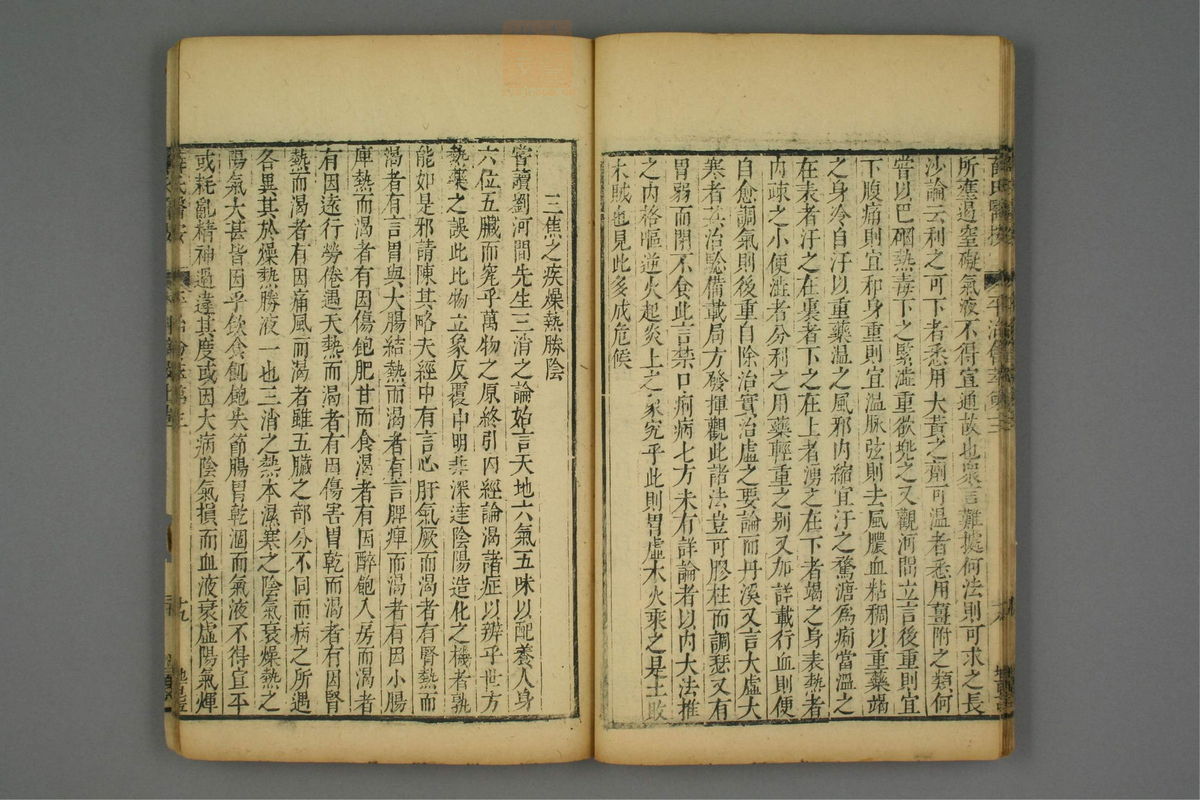 薛氏醫按 平治會萃卷三
所壅遏窒礙氣液不得宣通故也衆言難據何法則可求之長
沙論云利之可下者悉用大黃之劑可溫者悉用薑附之類何
嘗以巴硇熱毒下之緊澁重欲兠之又觀河間立言後重則宜
下腹痛則宜和身重則宜溫脉弦則去風膿血粘稠以重藥竭
之身冷自汗以重藥溫之風邪内縮宜汗之鶩溏爲痢當溫之
在表者汗之在裏者下之在上者湧之在下者竭之身表熱者
内疎之小便澁者分利之用藥輕重之别又加詳載行血則便
自愈調氣則後重自除治實治虛之要論而丹溪又言大虛大
寒者其治驗備載局方發揮觀此諸法豈可膠柱而調瑟又有
胃弱而閉不食此言禁口痢病七方未有詳論者以内大法推
之内格嘔逆火起炎上之象究乎此則胃虛木火乘之是土敗
木賊也見此多成危候
三焦之疾燥熱勝陰
嘗讀劉河間先生三消之論始言天地六氣五味以配養人身
六位五臟而究乎萬物之原終引内經論渴諸症以辨乎世方
熱藥之誤此比物立象反覆申明非深達陰陽造化之機者孰
能如是邪請陳其略夫經中有言心肝氣厥而渴者有腎熱而
渴者有言胃與大腸結熱而渴者有言脾痺而渴者有因小腸
庳熱而渴者有因傷飽肥甘而食渴者有因醉飽入房而渴者
有因遠行勞倦遇天熱而渴者有因傷害胃乾而渴者有因腎
熱而渴者有因痛風而渴者雖五臟之部分不同而病之所遇
各異其於燥熱勝液一也三消之熱本濕寒之陰氣衰燥熱之
陽氣大甚皆因乎飲食飢飽失節腸胃乾涸而氣液不得宣平
或耗亂精神過違其度或因大病陰氣損而血液衰虛陽氣煇
十九